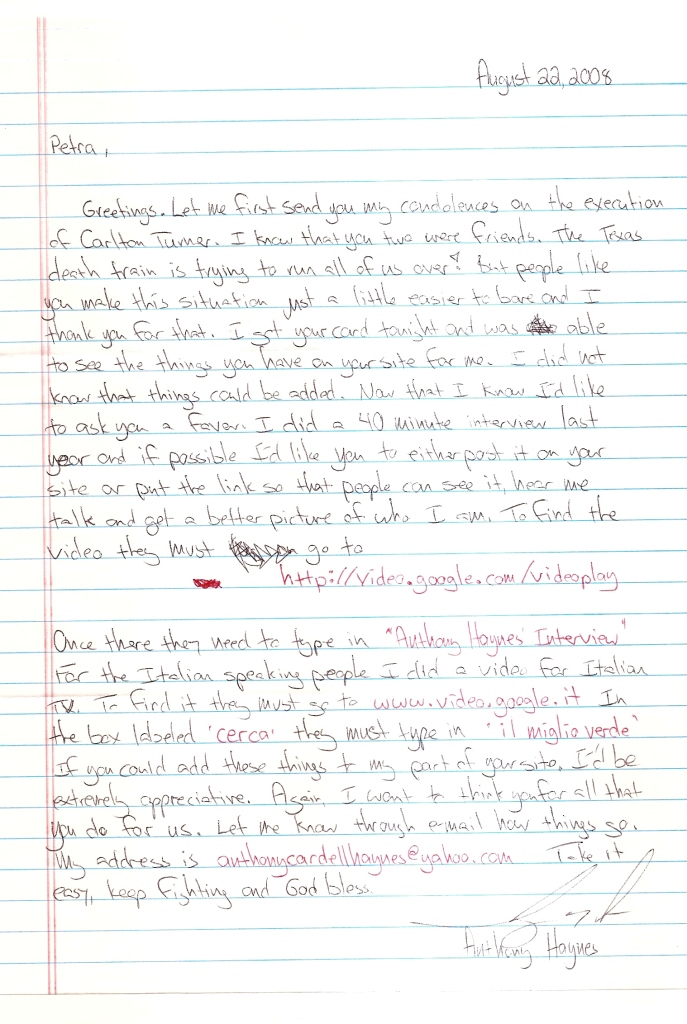 August 22, 2008
Petra,
Greetings. Let me first send you my condolences on the execution
of Carlton Turner. I know that you two were friends. The Texas
death train is trying to run all of us over! But people like
you make this situation just a little easier to bare and I
thank you for that. I got your card tonight and was able
to see the things you have on your site for me. I did not
know that things could be added. Now that I know I'd like
to ask you a favor. I did a 40 minute interview last
year and if possible I'd like you to either post it on your
site or put the link so that people can see it, hear me
talk and get a better picture of who I am. To find the
video they must go to
http://video.google.com/videoplay
Once there they need to type in "Anthony Haynes Interview"
For the Italian speaking people I did a video for Italian
TV. To find it they must go to www.video.google.it In
the box labeled 'cerca' they must type in "il miglio verde"
If you could add these things to my part of your site, I'd be
extremely appreciative. Again, I want to think you for all that
you do for us. Let me know through e-mail how things go.
My address is anthonycardellhaynes@yahoo.com Take it
easy, keep fighting and God bless.
Anthony Haynes